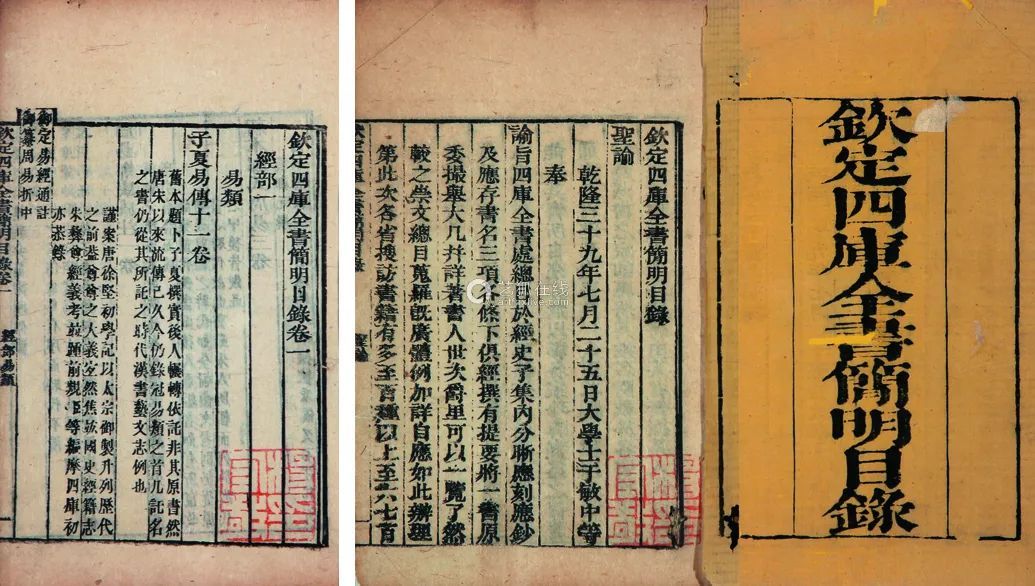 欽定四庫全書簡明目錄
欽定四庫全書簡明目錄
聖諭
乾隆三十九年七月二十五日大學士于敏中等
奉
諭旨四庫全書處總於經史子集內分晰應刻應鈔
及應存書名三項各條下俱經撰有提要將一書原
委撮舉大凡并詳著書人世次爵里可以一覽了然
較之崇文總目蒐羅旣廣體例加詳自應如此辦理
第此次各省搜訪書籍有多至百種以上至六七百
欽定四庫全書簡明目錄卷一
經部一
易類
子夏易傳十一卷
舊本題卜子夏撰實後人輾轉依託非其原書然
唐宋以來流傳已久今仍錄冠易類之首凡託名
之書仍從其所託之時代漢書藝文志例也
謹案唐徐堅初學記以太宗御製升列歷代
之前蓋尊尊之大義然焦竑國史經籍志
朱彝尊經義考並踵前規臣等編摩四庫初
亦恭錄
御定易經通註
御纂周易折中
欽定四庫全書簡明目錄卷一
經部易類
一